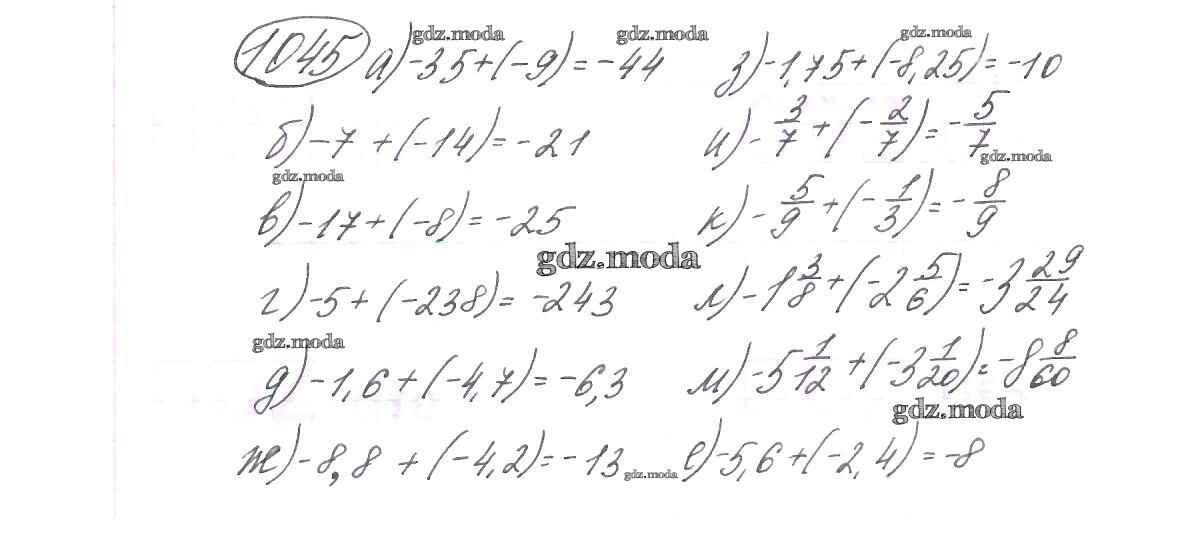 1045 а) -35+(-9)=-44
б) -7+(-14)=-21
в) -17+(-8)=-25
г) -5+(-238)=-243
д) -1,6+(-4,7)=-6,3
ж) -8,8+(-4,2)=-13
з) -1,75+(-8,25)=-10
и) -3/7+(-2/7)=-5/7
к) -5/9+(-1/3)=-8/9
л) -1 3/8+(-2 5/6)=-3 29/24
м) -5 1/12+(-3 1/20)=-8 8/60
е) -5,6+(-2,4)=-8
gdz.moda
gdz.moda
gdz.moda
gdz.moda
gdz.moda
gdz.moda
gdz.moda
gdz.moda
gdz.moda